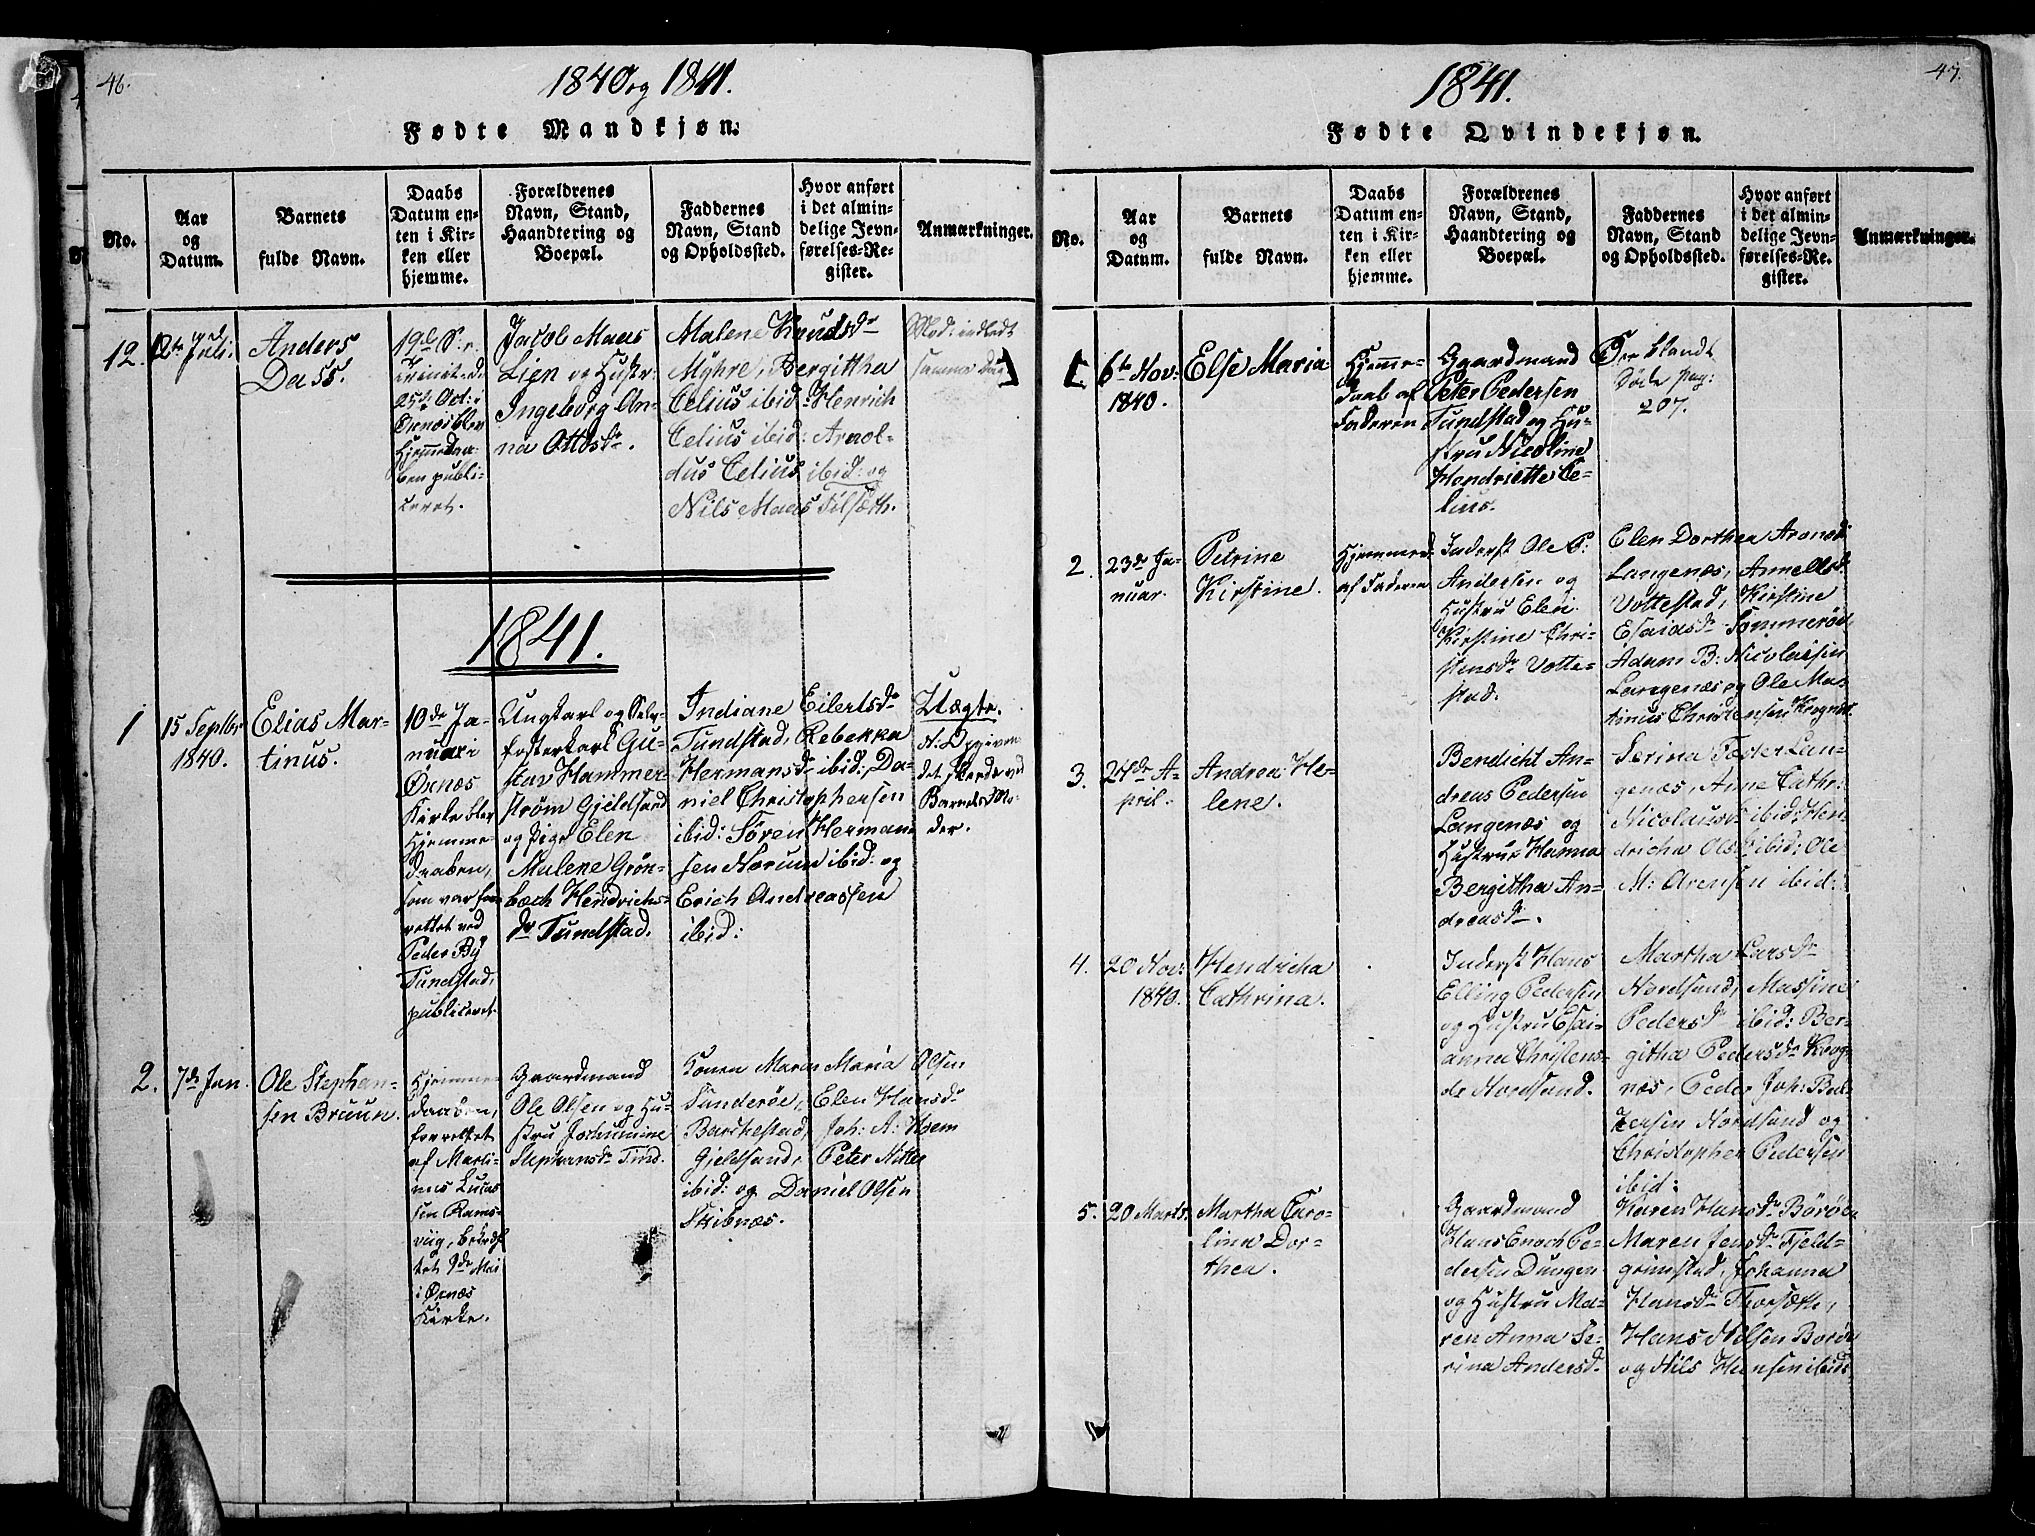 46.
1840 og 1841.
Fødte Mandkjøn.
No.
Aar
og
Datum.
Barnets
fulde Navn.
Daabs
Datum en-
ten i Kir-
ken eller
hjemme.
Forældrenes
Navn, Stand,
Haandtering og
Boepæl.
Faddernes
Navn, Stand
og Opholdssted.
Hvor anført
i det almin-
delige Jevn-
førelses-Re-
gister.
Anmærkninger.
12.
12te Juli.
Anders
Dass.
19de S. e.
Trinit. d.
25de Oct. i
Øxnæs blev
Hjemmedaa-
ben publi-
ceret.
Jacob Maas
Lien og Hustr.
Ingeborg An-
na Ottosdr.
Malene Knudsdr
Myhre, Bergittha
Celius ibid: Henrich
Celius ibid: Arnol-
dus Celius ibid: og
Nils Maas Tilsæth.
Mod: indledt
samme Dag
1841.
1
15 Septbr
1840.
Elias Mar-
tinus.
10de Ja-
nuari
Øxnæs
Kirke blev
Hjemme-
daaben,
som var for-
rettet ved
Peder By
Tundstad,
publiceret.
Ungkarl og Selv-
fosterkarl Gu-
stav Hammer-
strøm Gjeldsand
og Pige Elen
Malene Grøn-
bech Hendrichs-
dr Tundstad.
Indiane Eilertsdr
Tundstad, Rebekka
Hermansdr ibid: Da-
niel Christophersen
ibid: Søren Herman-
sen Norum ibid: og
Erich Andreassen
ibid:
Uægte.
N: Opgiven-
det skeede ved
Barnets Mo-
der.
2.
7de Jan.
Ole Stephan-
sen Bruun.
Hjemme-
daaben,
forrettet
af Marti-
nus Lucas
sen Rams-
viig, bekræf-
tet 9de Mai
i Øxnæs
Kirke.
Gaardmand
Ole Olsen og Hu-
stru Johumine
Stephansdr Tind.
Konen Maren Maria Olsen
Sanderøe, Elen Hansdr
Barkestad, Joh: A: Hoem
Gjeldsand, Peter Hitler
ibid: og Daniel Olsen
Skibnæs.
47.
1841.
Fødte Qvindekjøn.
No.
Aar
og
Datum.
Barnets
fulde Navn.
Daabs
Datum en-
ten i Kir-
ken eller
hjemme.
Forældrenes
Navn, Stand,
Haandtering og
Boepæl.
Faddernes
Navn, Stand
og Opholdssted.
Hvor anført
i det almin-
delige Jevn-
førelses-Re-
gister.
Anmærkninger.
6te Nov:
1840.
Else Maria
Hjemme-
daab af
Faderen
Gaardmand
Peter Pedersen
Tundstad og Hu-
stru Nicoline
Hendriette Ce-
lius.
See blandt
Døde pag:
207.
2.
23de Ja-
nuar.
Petrine
Kirstine.
Hjemmed.
af Faderen
Inderst Ole P:
Andersen og
Hustru Elen
Kirstine Chri-
stensdr Votte-
stad.
Elen Dorthea Aronsdr
Langenæs, Anne Olsd:
Vottestad, Kirstine
Esaiasdr Sommerød,
Adam B: Nicolaisen
Langenæs og Ole Mar-
tinus Christensen Krognæs.
3.
24de A-
pril.
Andrea He-
lene.
Bendicht An-
dreas Pedersen
Langenæs og
Hustrue Hanna
Bergitha An-
dreasdr.
Serina Peder Lan-
genæs, Anne Cathr:
Nicolausdr ibid: Hen-
dricha Olsdr ibid: Ole
M: Arensen ibid:
4.
20 Nov:
1840.
Hendricha
Cathrina.
Inderst Hans
Elling Pedersen
og Hustru Esai-
anna Christens-
dr Nordsand.
Martha Larsdr
Nordsand, Massine
Pedersdr ibid: Ber-
githa Pedersdr Krog-
næs, Peder Joh: Bal-
zersen Nordsand og
Christopher Pedersen
ibid:
5.
20 Marts.
Martha Caro-
lina Dor-
thea.
Gaardmand
Hans Enoch Pe-
dersen Dungen
og Hustru Ma-
ren Anna Se-
rina Andersdr.
Karen Hansdr Børøen
Maren Jensdr Fjeld-
grimstad, Johanna
Hansdr Thorsæth,
Hans Nilsen Børøe
og Nils Hansen ibid: